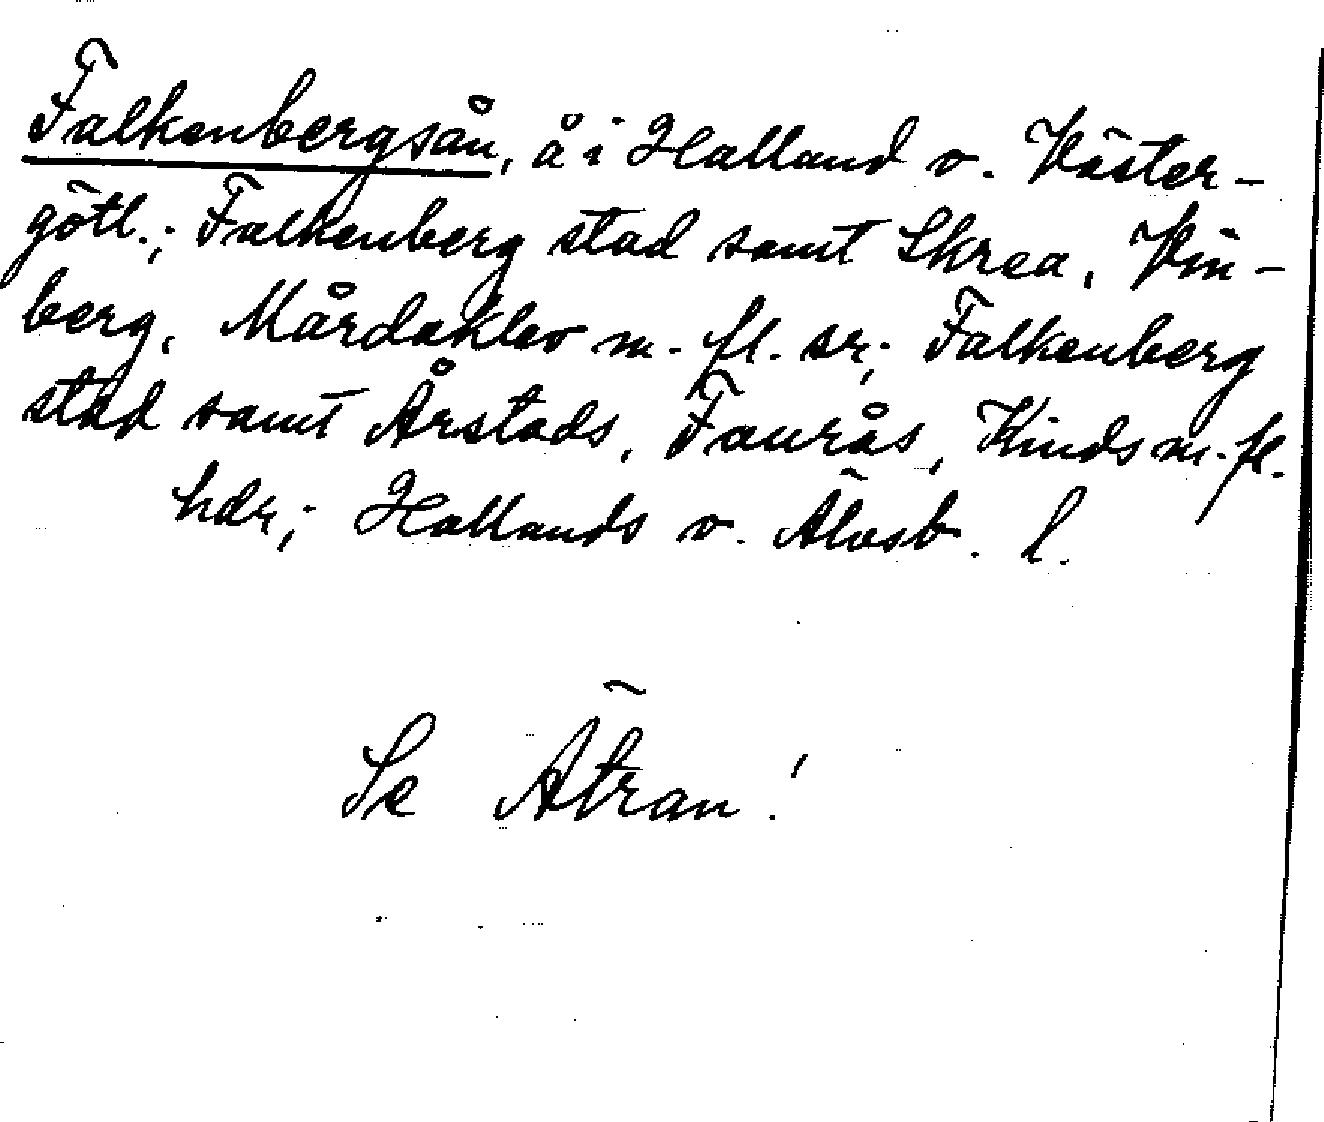 Falkenbergsån, å i Halland o. Väster-
götl.; Falkenberg stad samt Skrea, Vin-
berg, Mårdaklev m. fl. sr; Falkenberg
stad samt Årstads, Faurås, Kinds m. fl.
hdr; Hallands o. Älvsb. l.
Se Ätran!